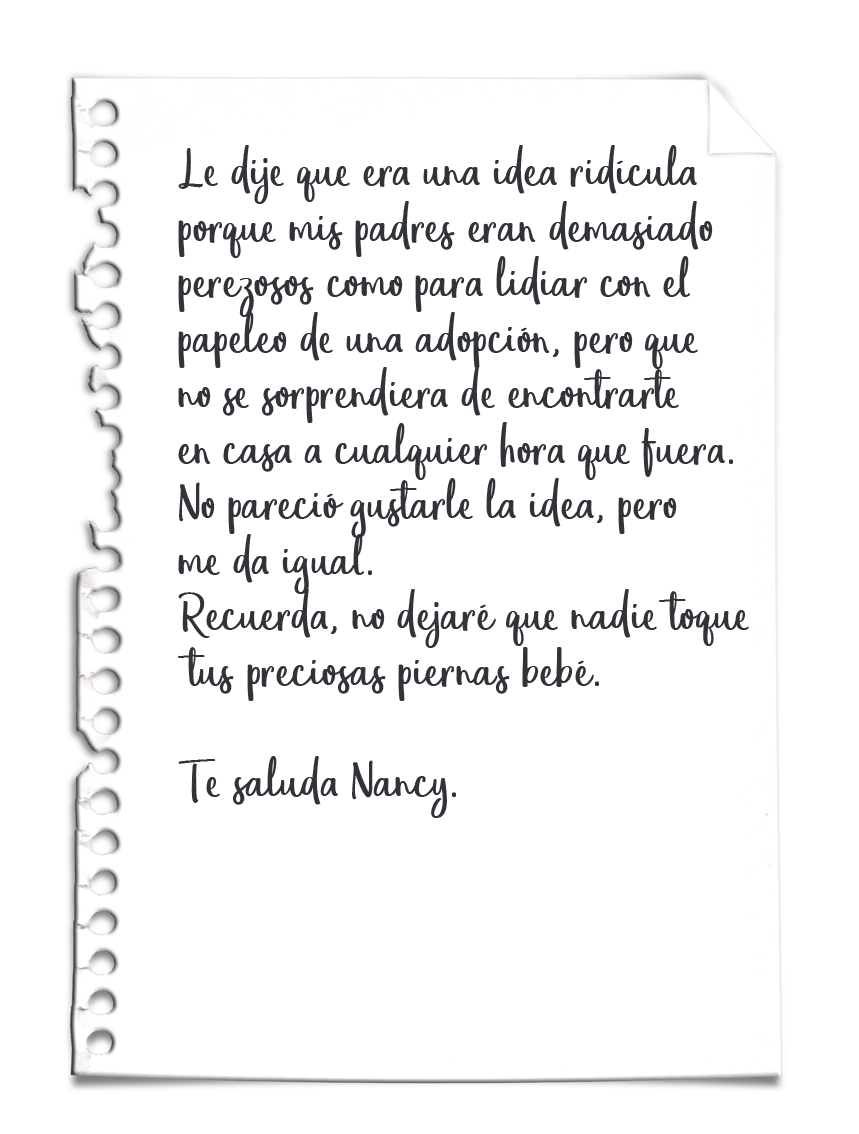 Le dije que era una idea ridícula
porque mis padres eran demasiado
perezosos como para lidiar con el
papeleo de una adopción, pero que
no se sorprendiera de encontrarte
en casa a cualquier hora que fuera.
No pareció gustarle la idea, pero
me da igual.
Recuerda, no dejaré que nadie toque
tus preciosas piernas bebé.
Te saluda Nancy.